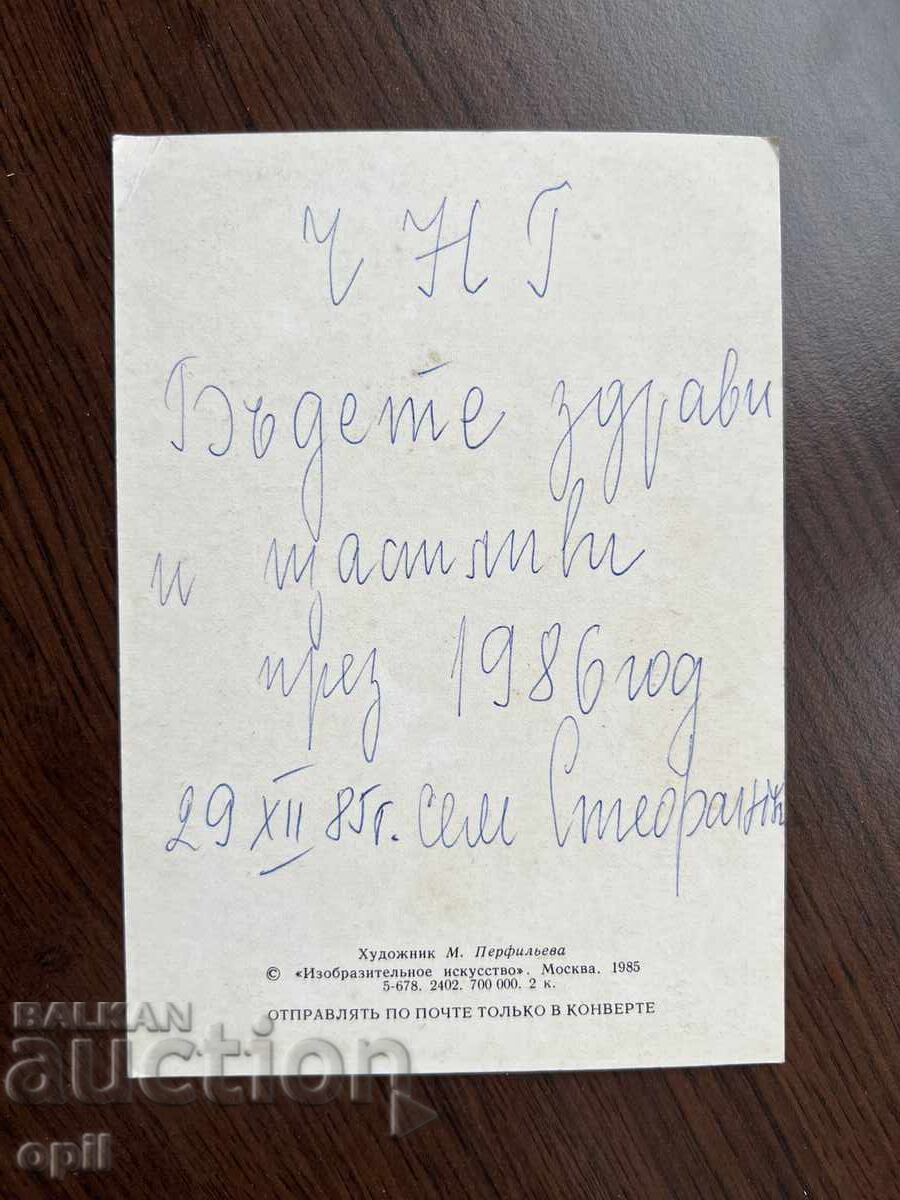 ЧНГ
Бъдете здрави
и щастливи
през 1986 год
29 XII 85г. сем
Художник М. Перфильева
© «Изобразительное искусство». Москва. 1985
5-678. 2402. 700 000. 2 к.
ОТПРАВЛЯТЬ ПО ПОЧТЕ ТОЛЬКО В КОНВЕРТЕ
BALKAN
auction
opil